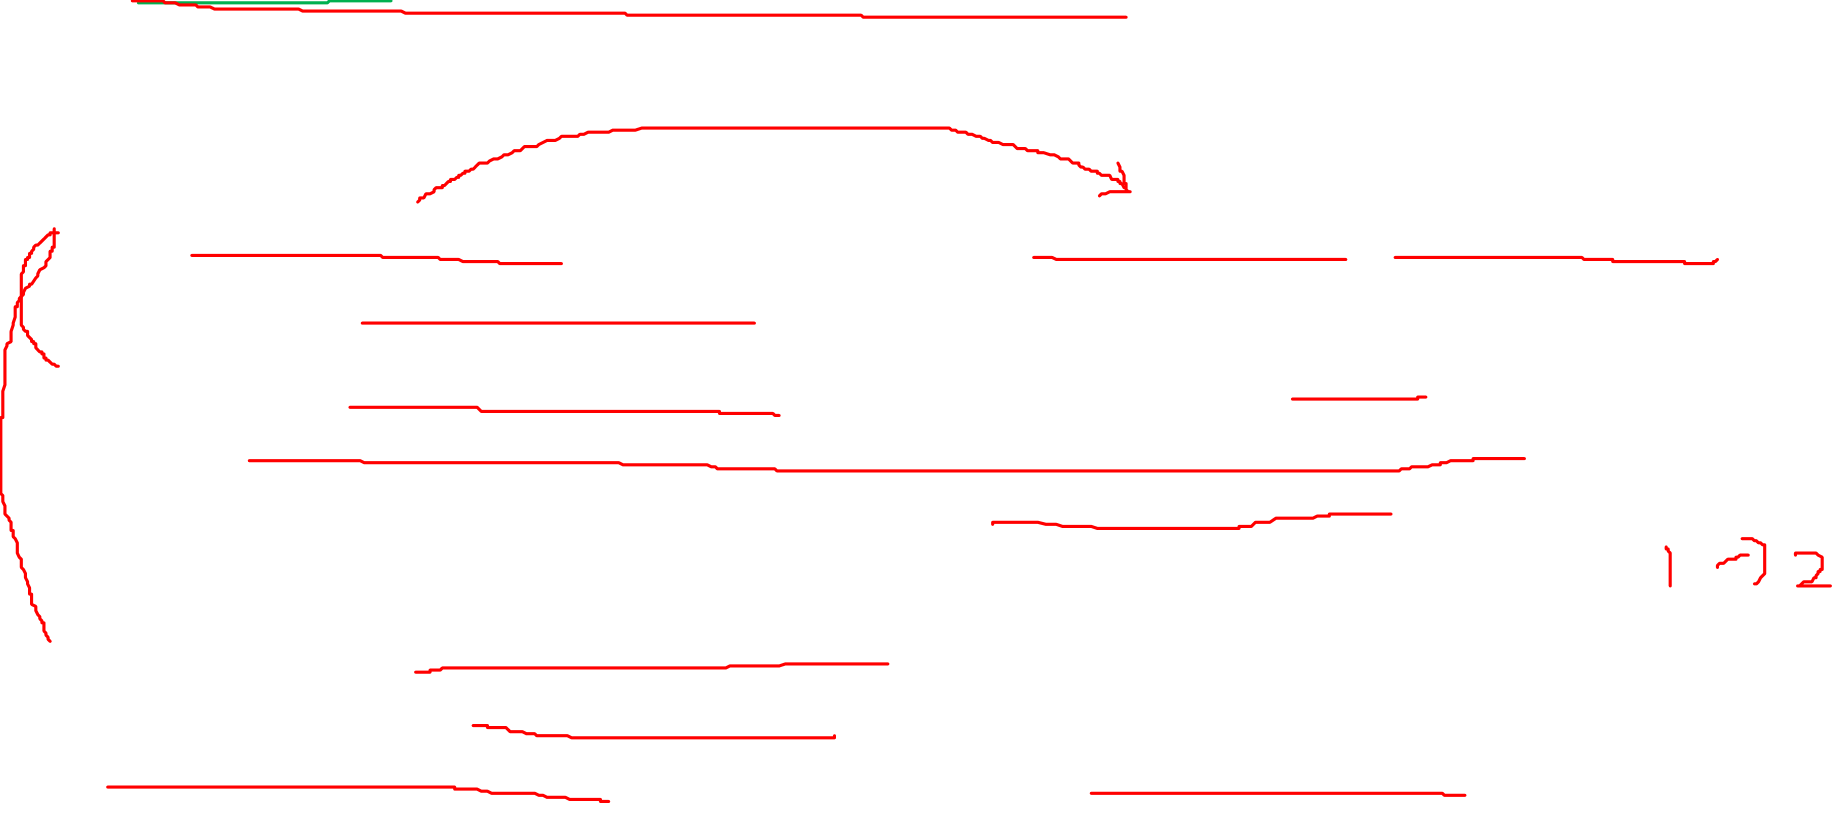 1 → 2